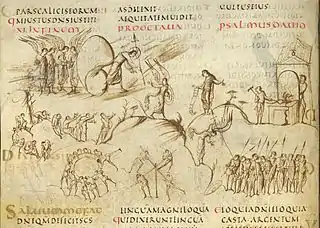 PARSCALICISEORUM
QMIUSTUSDNSIUSTITI
XI INFINEM
ASDILEXIT
AEQUITATEMUIDIT
PROOCTAUA
UULTUSEIUS
PSALMUSDAUID
SALUUMMEFAC
DNEQMDEFICITSCS
LINGUAMAGNILOQUA
QUIDIXERUNTLINGUA
ELOQUIADNIELOQUIA
CASTAARGENTUM